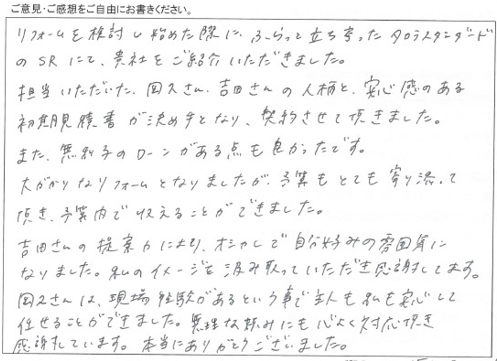 ご意見・ご感想をご自由にお書きください。
リフォームを検討し始めた際に、ふらっと立ち寄ったタカラスタンダード
のSRにて、貴社をご紹介いただきました。
担当いただいた、岡久さん、吉田さんの人柄と、安心感のある
初期見積書が決め手となり、契約させて頂きました。
また、無利子のローンがある点も良かったです。
大がかりなリフォームとなりましたが、予算もとても寄り添って
頂き、予算内で収えることができました。
吉田さんの提案力により、オシャレで自分好みの雰囲気に
なりました。私のイメージを汲み取っていただき感謝してます。
岡久さんは、現場経験があるという事で主人も私も安心して
任せることができました。無理な頼みにも心よく対応頂き
感謝しています。本当にありがとうございました。